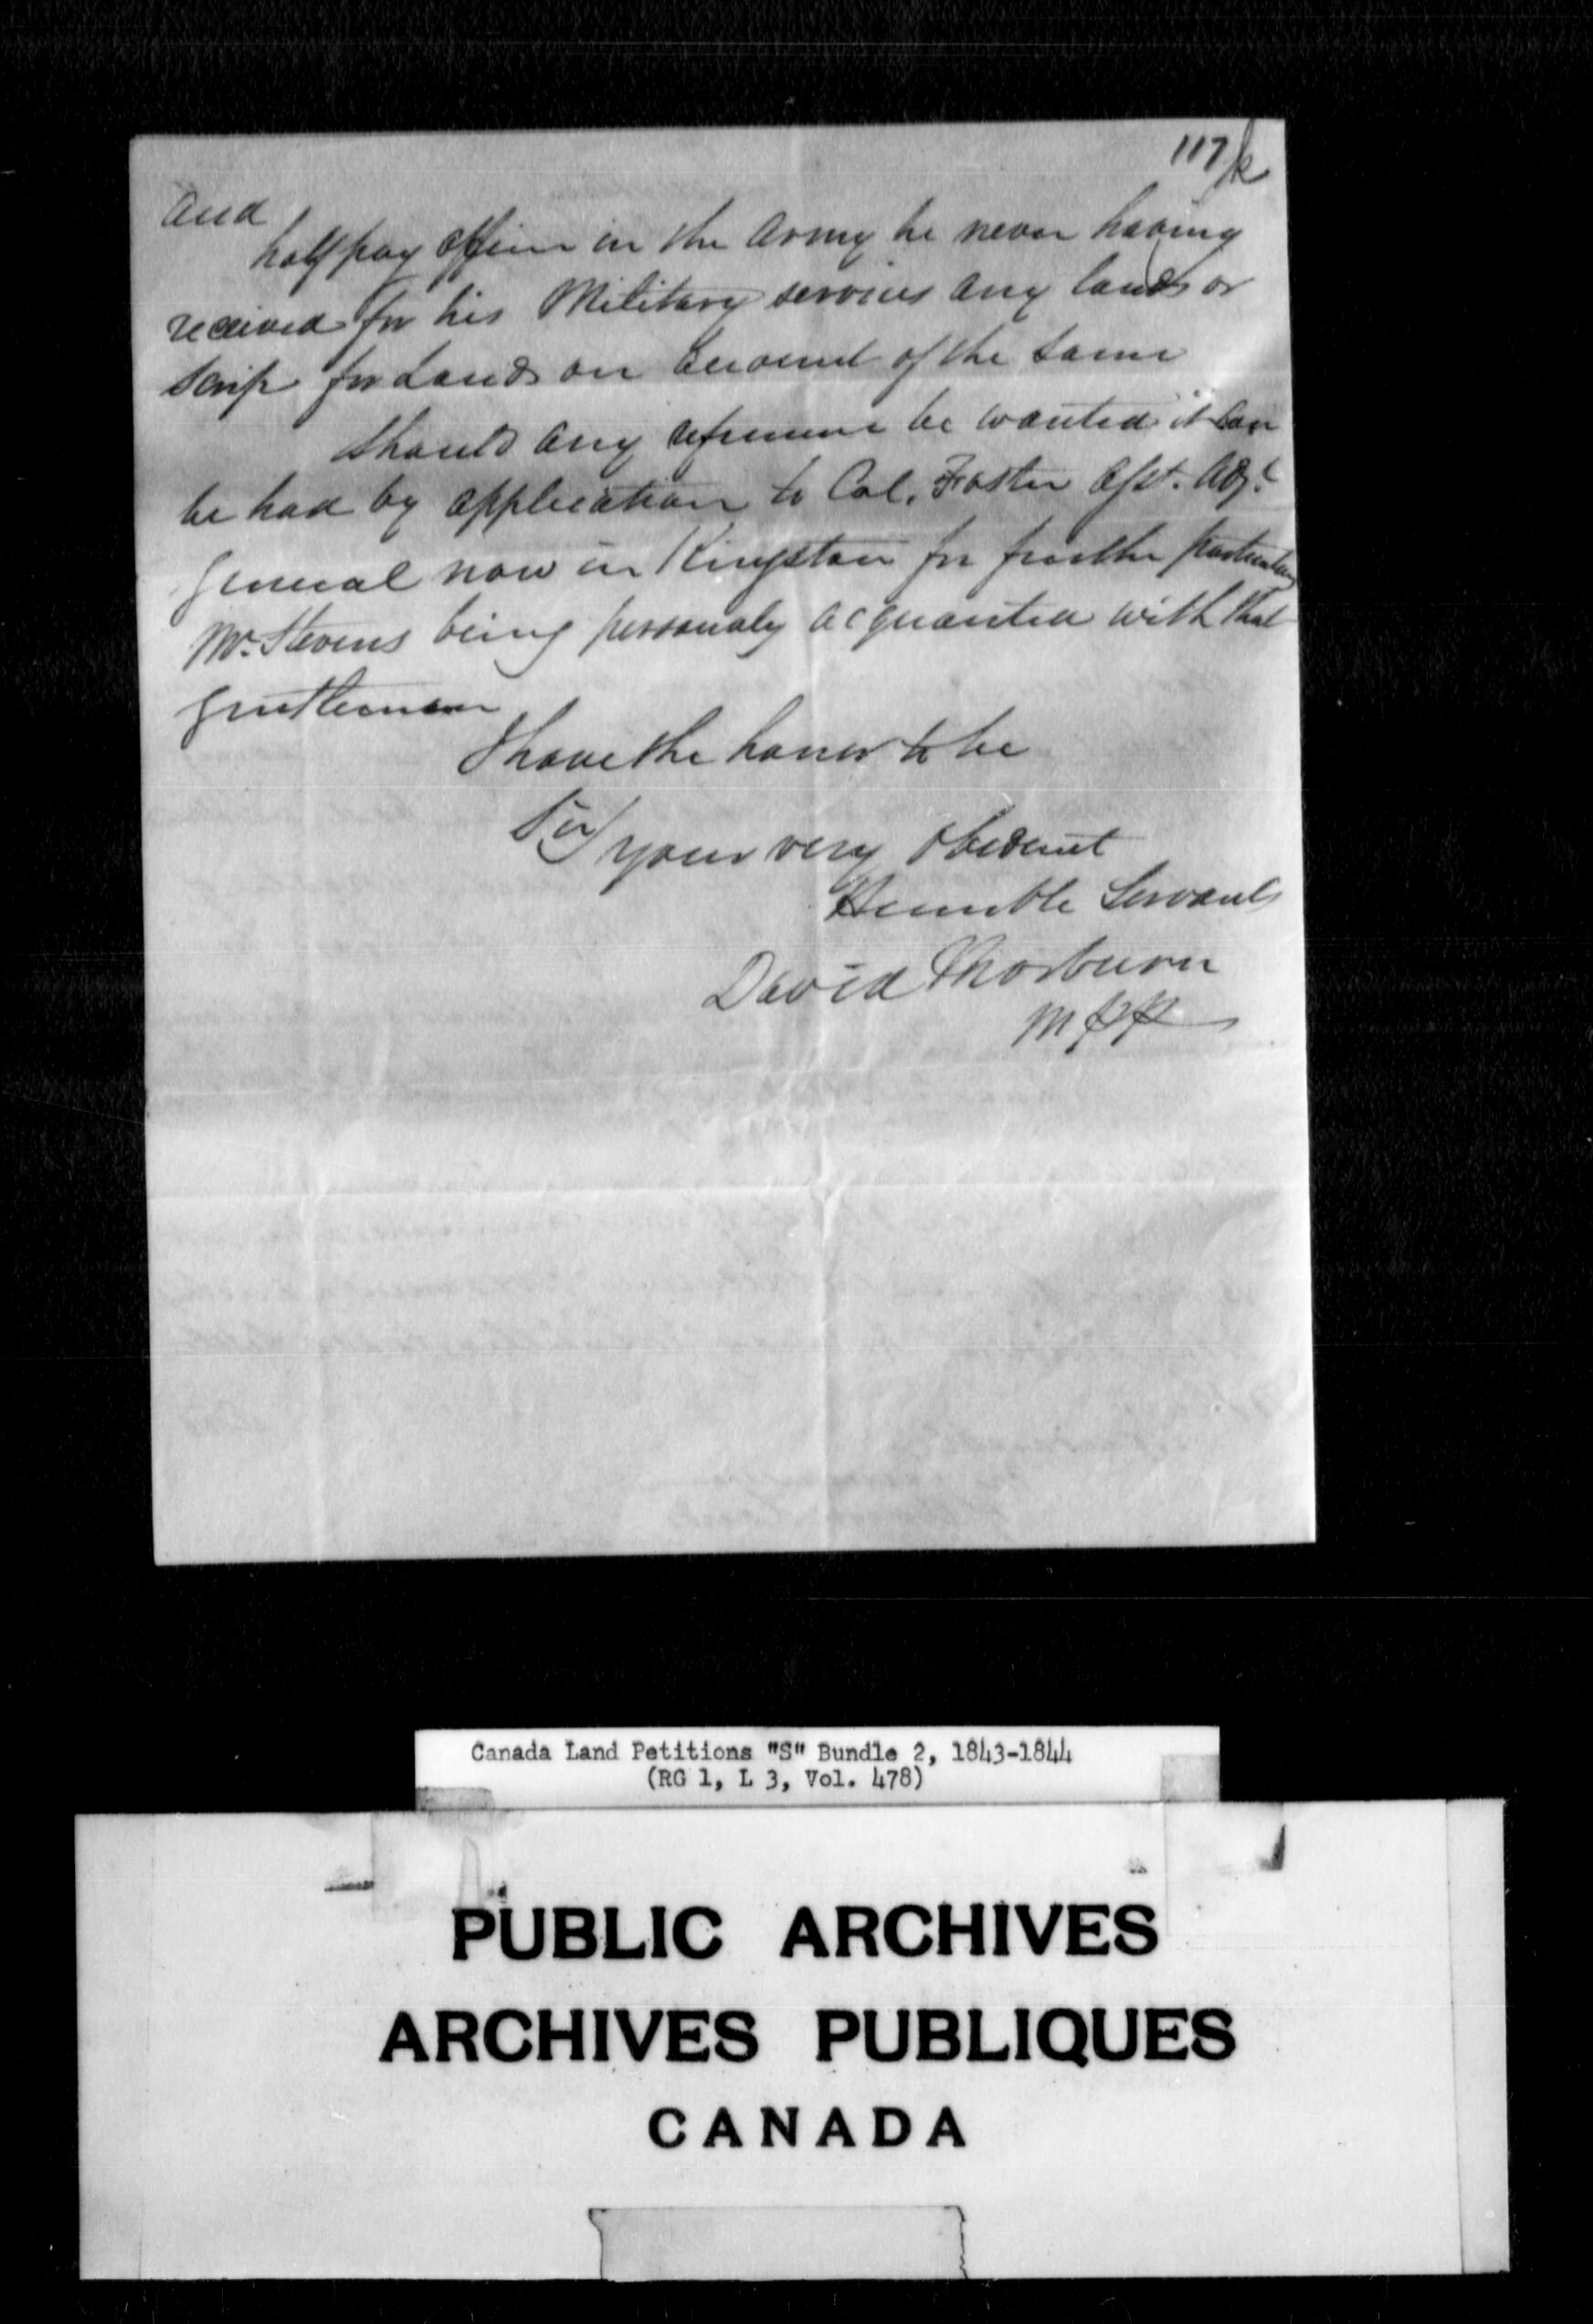 117/k
and
half pay officer in the Army he never having
received for his Military services any lands or
scrip for Lands on account of the same
Should any reference be wanted it can
be had by application to Col. Foster Asst. Adjt
General now in Kingston for further particulars
Mr. Stevens being personaly acquanted with that
gentleman
I have the honor to be
Sir
your very obedient
Humble Servant
David Thorburn
MPP
Canada Land Petitions "S" Bundle 2, 1843-1844
(RG 1, L 3, Vol. 478)
PUBLIC ARCHIVES
ARCHIVES PUBLIQUES
CANADA